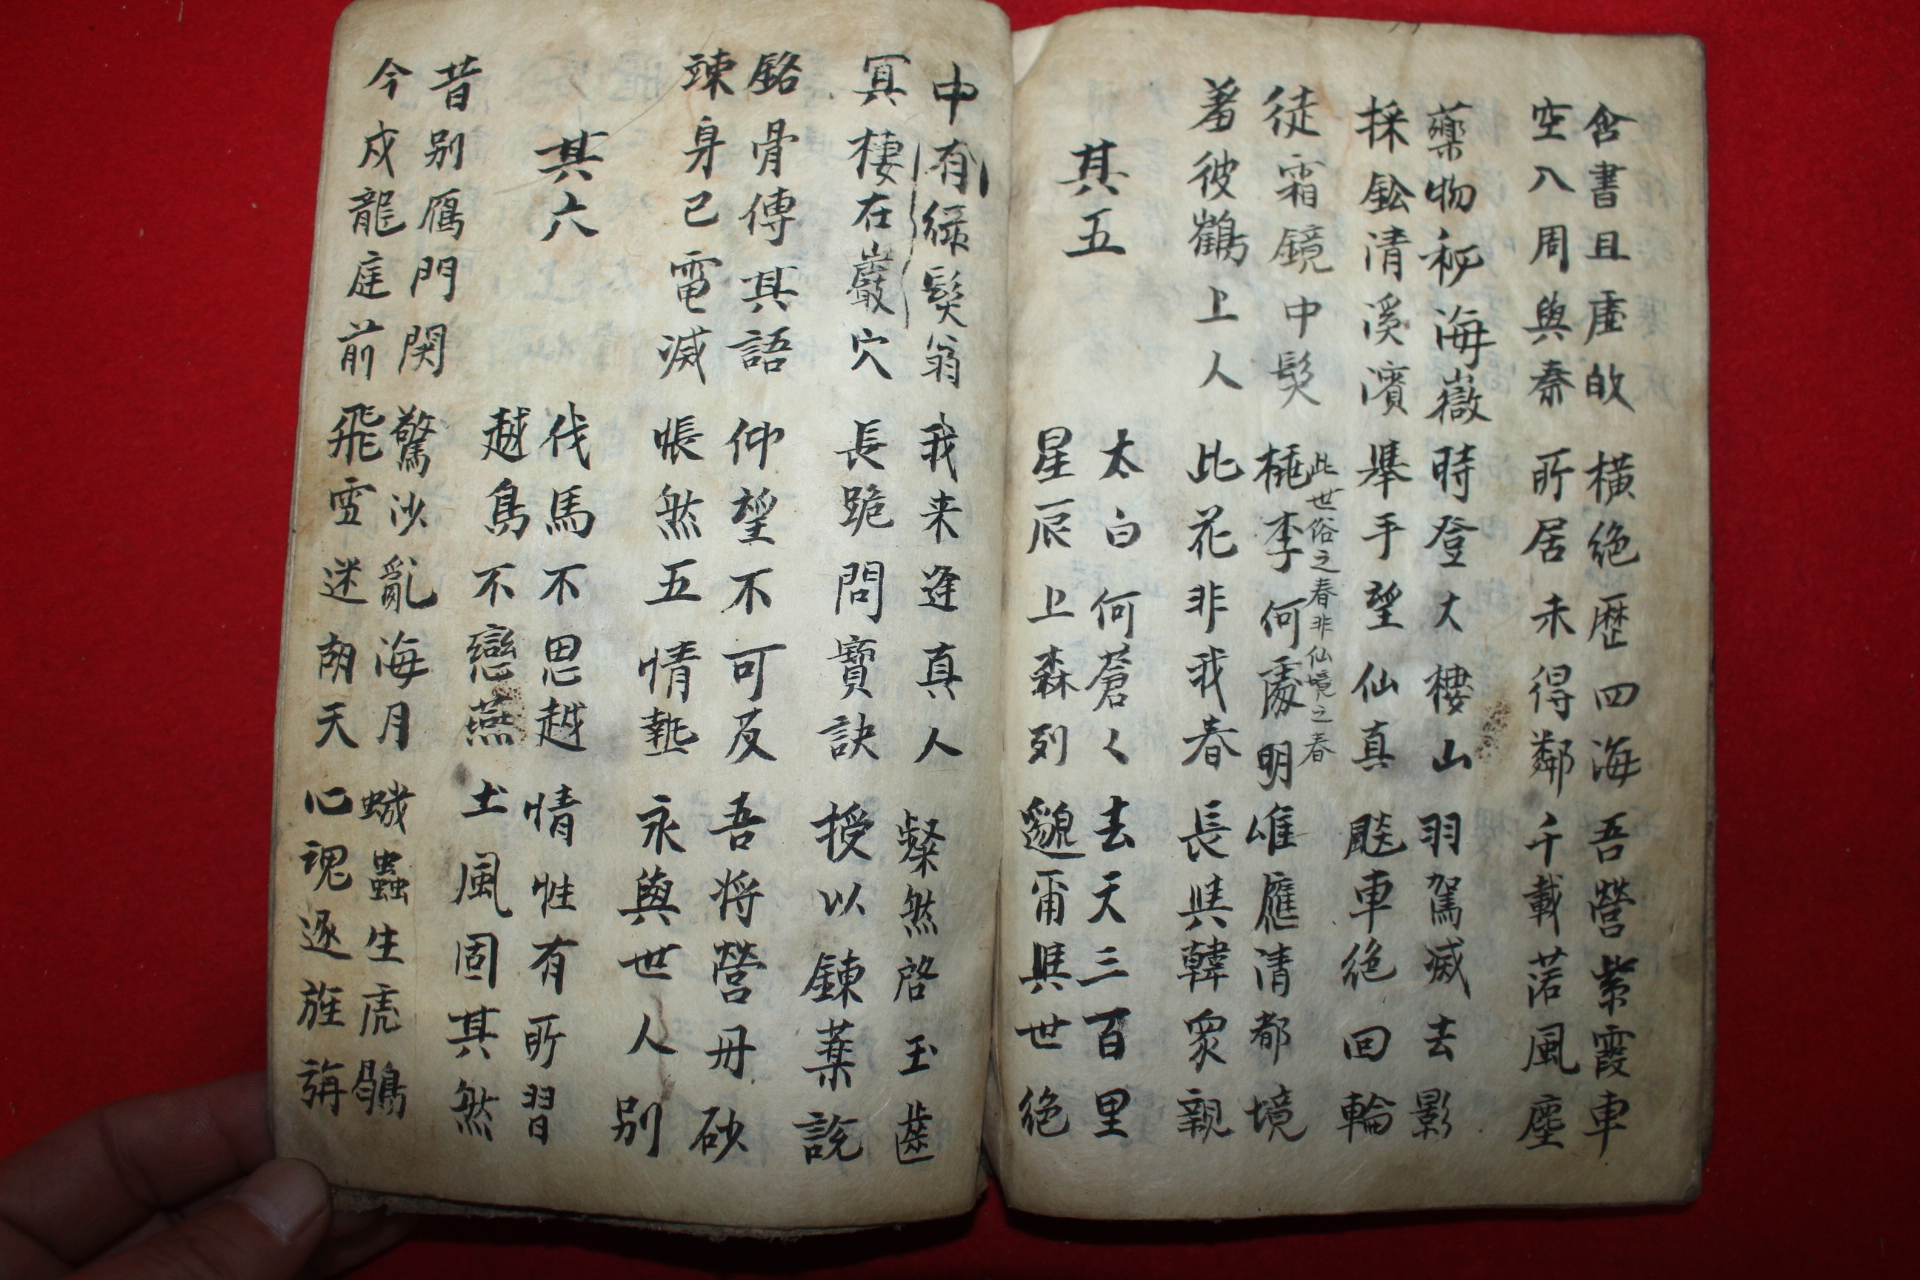 含書且虛皈 橫絕歷四海 吾營紫霞車
空入周與秦 所居未得鄰 千載落風塵
藥物秘海嶽 時登大樓山 羽駕滅去影
採鈆清溪濱 舉手望仙真 飈車絕回輪
此世俗之春非仙境之春
徒霜鏡中髮 桃李何處明 唯應清都境
羞彼鶴上人 此花非我春 長與韓衆親
其五
太白何蒼々 去天三百里
星辰上森列 邈爾與世絕
中有綠髮翁 我来逢真人 粲然啓玉齒
冥棲在巖穴 長跪問寶訣 授以鍊藥說
銘骨傳其語 仰望不可及 吾将營丹砂
竦身已電滅 悵然五情熱 永與世人別
其六
伐馬不思越 情性有所習
越鳥不戀燕 土風固其然
昔別鴈門関 驚沙亂海月 蟣蝨生虎鶡
今戍龍庭前 飛雪迷胡天 心魂逐旌旃